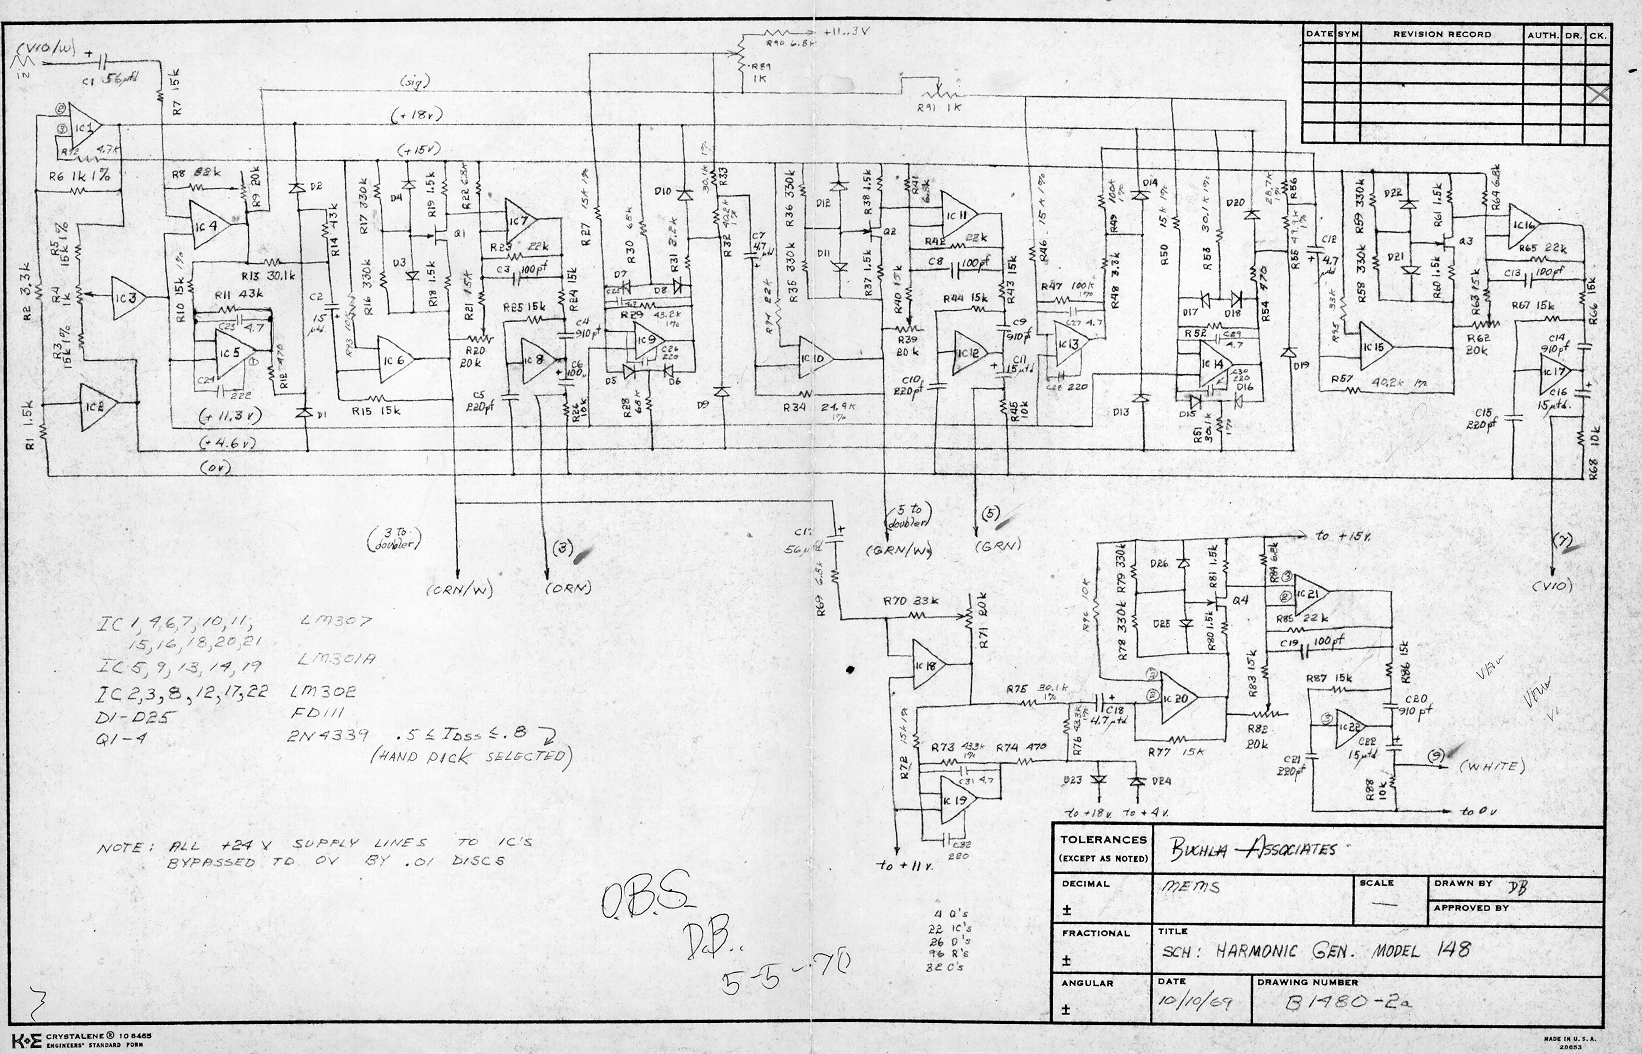 (VIO/W)
IN
C1 56µfd
R7 15k
(sig)
(+18v)
(+15v)
R90 6.8k
+11.3V
R89
1K
R91 1K
DATE SYM REVISION RECORD AUTH. DR. CK.
IC1
R12 4.7k
R6 1k 1%
R8 82k
R9 20k
D2
R5
15k 1%
R4
1k
R3
15k 1%
R2 3.3k
R1 1.5k
IC3
IC2
IC4
R10 15k 1%
R13 30.1k
R11 43k
C23 4.7
IC5
C24
222
R12 470
R14 43k
C2
15
µfd.
D1
(+11.3v)
(+4.6v)
(0v)
R17 330k
R16 330k
D4
D3
R19 1.5k
R18 1.5k
Q1
R93 10k
IC6
R15 15k
R22 6.8k
R21 15k
R20
20k
IC7
R23 22k
C3 100pf
R25 15k
R24 15k
C4
910pf
IC8
C5
220pf
C6
100µ
R26
10k
R27 15k 1%
R30 68k
R31 2.2k
D10
D7
D8
R29 43.2k
1%
IC9
C26
220
D5
D6
R28
68k
R33
30.1k 1%
R32 42.2k
1%
D9
C7
4.7
µfd
R36 330k
R35 330k
D12
D11
R94 22k
R38 1.5k
R37 1.5k
Q2
IC10
R34 24.9k
1%
R41
6.8k
R40 15k
R39
20k
IC11
R42 22k
C8 100pf
R44 15k
R43 15k
C9
910pf
IC12
C10
220pf
C11
15µfd
R45
10k
R46 15k 1%
R47 100k
1%
C27 4.7
IC13
C28 220
R49 100k
1%
R48 3.3k
D14
D13
R50 15k 1%
R53 30.1k 1%
D20
D17
D18
R52
C29
4.7
IC14
C30
220
D16
D15
R51
30.1k
1%
R54 470
R56
28.7k 1%
R55 49.9k
1%
D19
C12
4.7
µfd
R95 33k
R59 330k
R58 330k
D22
D21
R61 1.5k
R60 1.5k
Q3
IC15
R57 40.2k 1%
R64 6.8k
R63 15k
R62
20k
IC16
R65 22k
C13 100pf
R67 15k
R66 15k
C14
910pf
IC17
C16
15µfd.
C15
220pf
R68 10k
(3 to
doubler)
(ORN/W)
(3)
(ORN)
C17
56µfd
R69 6.8k
(5 to
doubler)
(GRN/W)
(5)
(GRN)
(7)
(VIO)
R70 33k
R71 20k
IC18
R72 15k 1%
R73 43.3k
1%
R74 470
C31 4.7
IC19
C32
220
to +11v.
R75 30.1k
1%
R76 43.3k
1%
C18
4.7µfd
D23
D24
to +18v
to +4v.
R96 10k
R79 330k
R78 330k
D26
D25
R81 1.5k
R80 1.5k
Q4
IC20
R77 15k
to +15v.
R84 6.8k
R83 15k
R82
20k
IC21
R85 22k
C19 100pf
R86 15k
R87 15k
C20
910pf
IC22
C22
15µfd
C21
220pf
R88
10k
(9)
(WHITE)
to 0v
IC 1, 4, 6, 7, 10, 11, LM307
15, 16, 18, 20, 21
IC 5, 9, 13, 14, 19 LM301A
IC 2, 3, 8, 12, 17, 22 LM302
D1-D25 FD111
Q1-4 2N4339 .5 ≤ IDSS ≤ .8
(HAND PICK SELECTED)
NOTE: ALL +24V SUPPLY LINES TO IC'S
BYPASSED TO 0V BY .01 DISCS
O.B.S.
D.B..
5-5-70
4 Q's
22 IC's
26 D's
96 R's
32 C's
TOLERANCES
(EXCEPT AS NOTED)
BUCHLA ASSOCIATES
DECIMAL
±
MEMS
SCALE
—
DRAWN BY DB
APPROVED BY
FRACTIONAL
±
TITLE
SCH: HARMONIC GEN. MODEL 148
ANGULAR
±
DATE
10/10/69
DRAWING NUMBER
B1480-2a
K+E CRYSTALENE® 10 8465
ENGINEERS' STANDARD FORM
MADE IN U.S.A.
28653